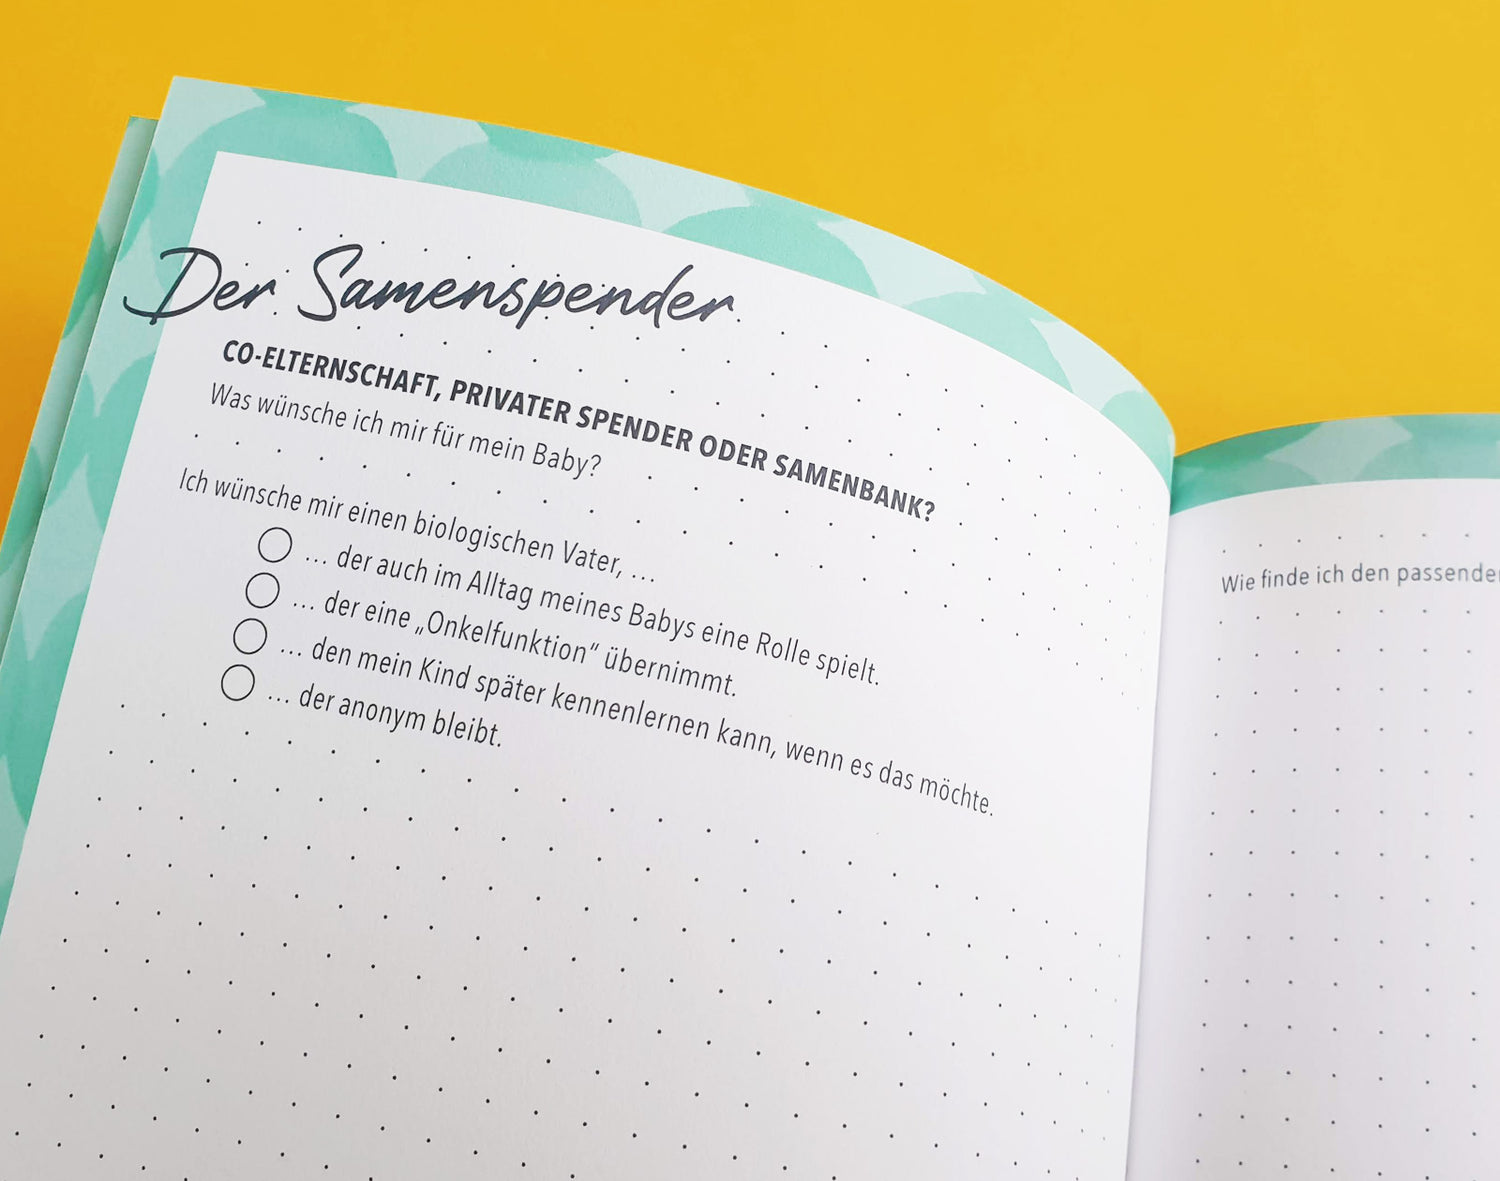 Der Samenspender
CO-ELTERNSCHAFT, PRIVATER SPENDER ODER SAMENBANK?
Was wünsche ich mir für mein Baby?
Ich wünsche mir einen biologischen Vater, ...
... der auch im Alltag meines Babys eine Rolle spielt.
... der eine „Onkelfunktion“ übernimmt.
... den mein Kind später kennenlernen kann, wenn es das möchte.
... der anonym bleibt.
Wie finde ich den